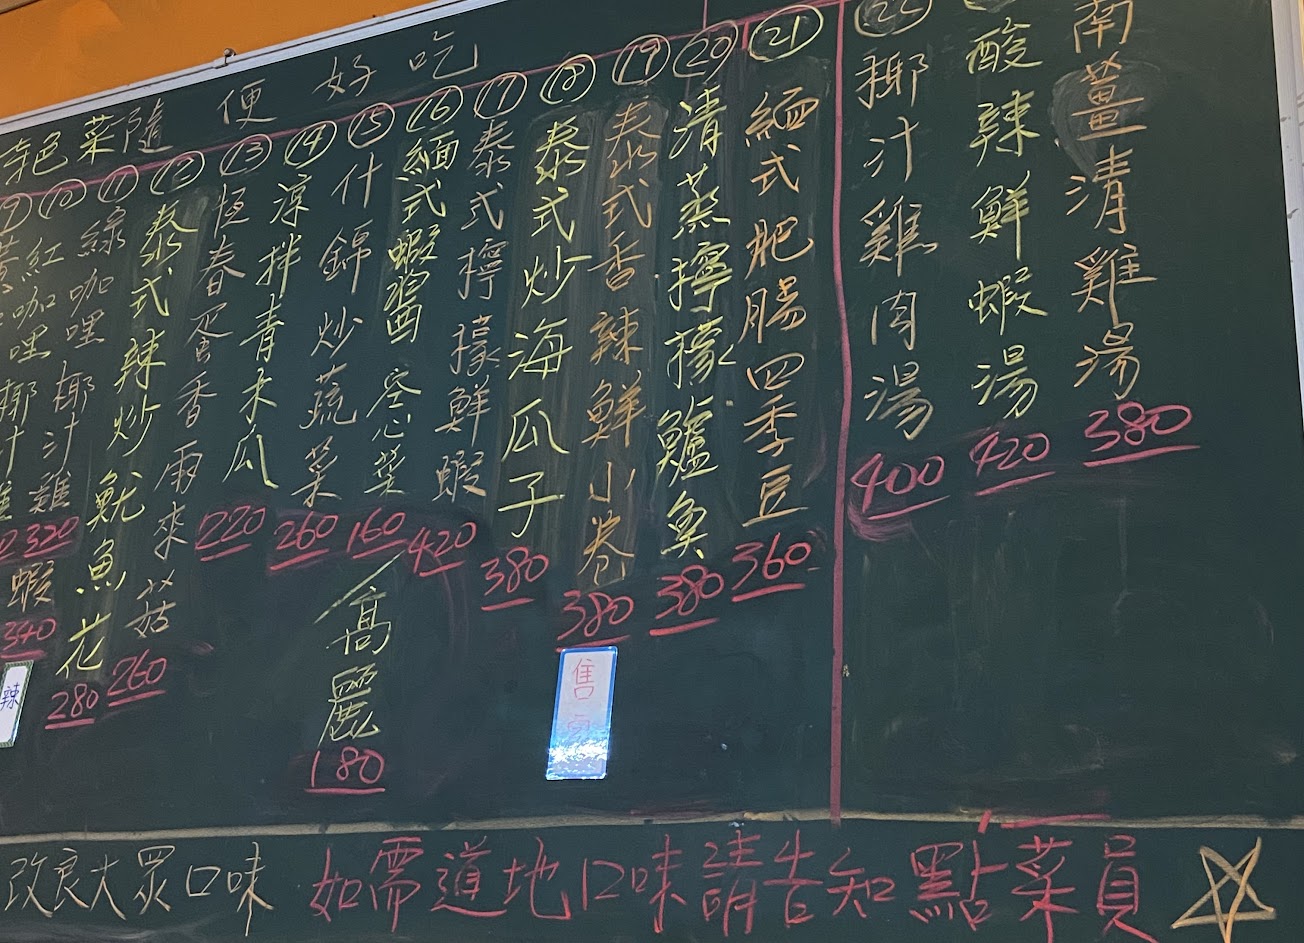 色菜隨便好吃
⑨
⑩ 紅咖哩椰汁
⑪ 綠咖哩椰汁雞 320
蝦 340
辣
⑫ 泰式辣炒魷魚花 280
⑬ 恆春蛋香雨來菇 260
⑭ 涼拌青木瓜 220
⑮ 什錦炒蔬菜 260
⑯ 緬式蝦醬空心菜 160
高麗 180
⑰ 泰式檸檬鮮蝦 420
⑱ 泰式炒海瓜子 380
⑲ 泰式香辣鮮小卷 380
售
⑳ 清蒸檸檬鱸魚 380
㉑ 緬式肥腸四季豆 360
㉒ 椰汁雞肉湯 400
酸辣鮮蝦湯 420
南薑清雞湯 380
改良大眾口味 如需道地口味請告知點菜員